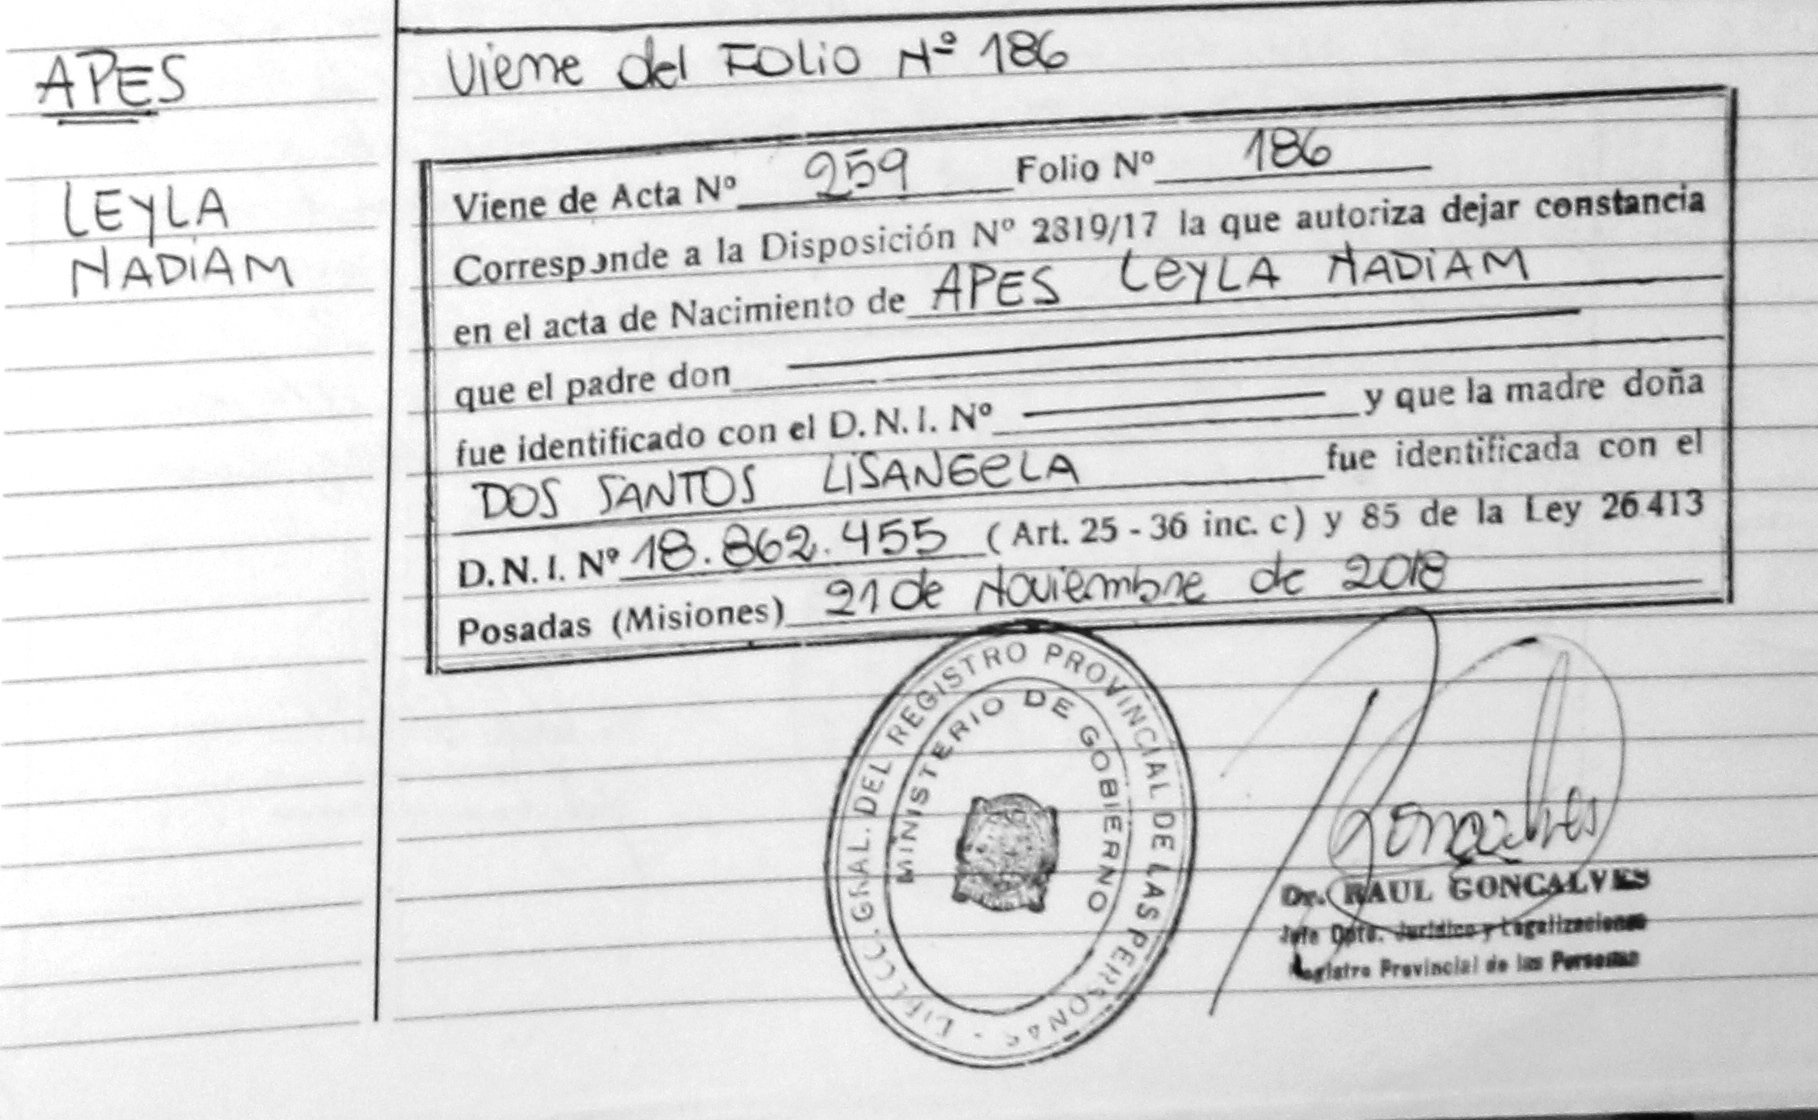 APES
LEYLA
NADIAM
Viene del FOLIO Nº 186
Viene de Acta Nº 259 Folio Nº 186
Corresponde a la Disposición Nº 2319/17 la que autoriza dejar constancia
en el acta de Nacimiento de APES LEYLA NADIAM
que el padre don
fue identificado con el D.N.I. Nº y que la madre doña
DOS SANTOS LISANGELA fue identificada con el
D.N.I. Nº 18.862.455 (Art. 25 - 36 inc. c) y 85 de la Ley 26.413
Posadas (Misiones) 21 de Noviembre de 2018
DIRECC. GRAL. DEL REGISTRO PROVINCIAL DE LAS PERSONAS -
MINISTERIO DE GOBIERNO
Goncalves
Dr. RAUL GONCALVES
Jefe Dpto. Jurídico y Legalizaciones
Registro Provincial de las Personas